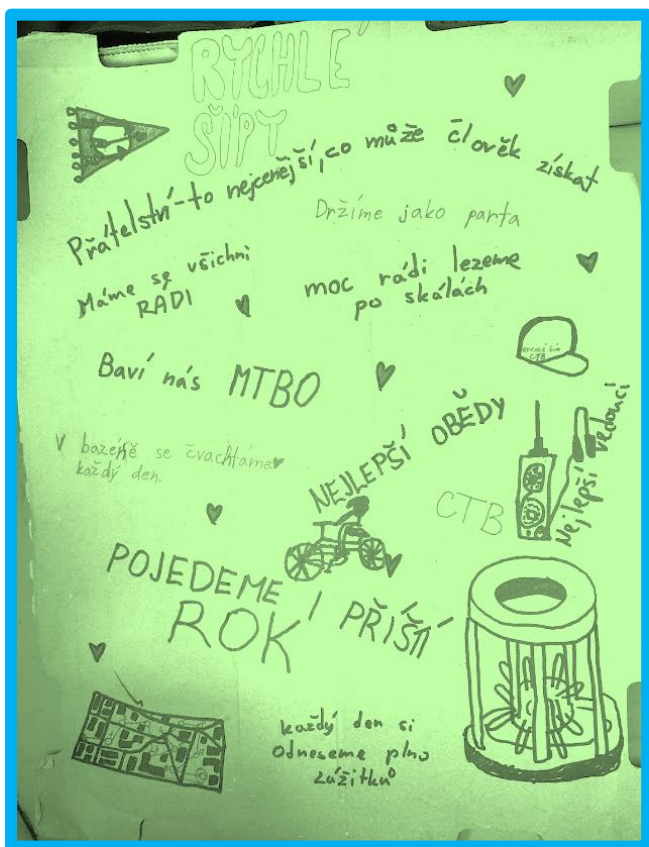 RYCHLÉ
ŠÍPY
Přátelství-to nejcenější, co může člověk získat
Držíme jako parta
Máme se všichni
RADI
moc rádi lezeme
po skálách
Baví nás MTBO
V bazéně se čvachtáme
každý den.
NEJLEPŠÍ OBĚDY
CTB
Nejlepší vedoucí
POJEDEME I PŘÍŠTÍ
ROK
každý den si
Odneseme plno
zážitků